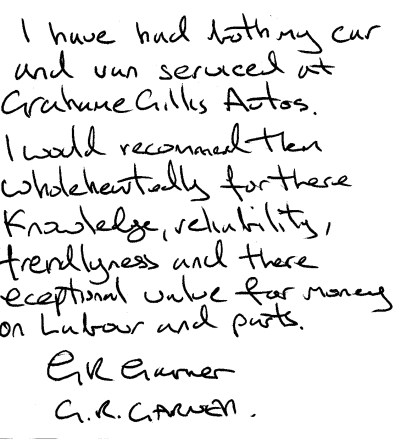 I have had both my car
and van serviced at
Grahame Gills Autos.
I would recommend them
wholeheartedly for there
Knowledge, reliability,
frendlyness and there
eceptional value for money
on Labour and parts.
GR Garner
G.R. GARNER.